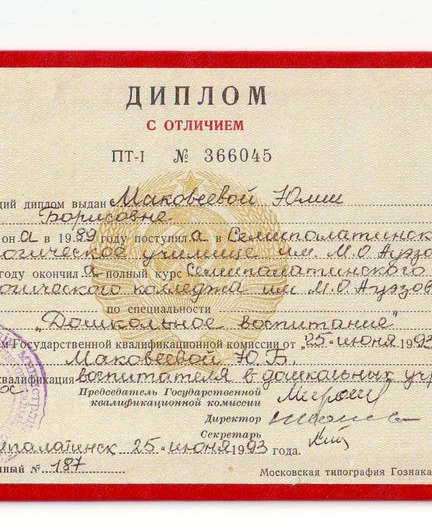 ДИПЛОМ
С ОТЛИЧИЕМ
ПТ-I № 366045
ий диплом выдан Маковеевой Юлии
Борисовне
он а в 1989 году поступил а в Семипалатинск
огическое училище им. М.О.Ауэзо
году окончил а полный курс Семипалатинского
огического колледжа им. М.О.Ауэзов
по специальности
"Дошкольное воспитание"
м Государственной квалификационной комиссии от "25" июня 1993
Маковеевой Ю.Б.
квалификация воспитателя в дошкольных учр
Председатель Государственной
квалификационной комиссии
Директор
Секретарь
палатинск 25 июня 1993 года.
ный № 187
Московская типография Гознака